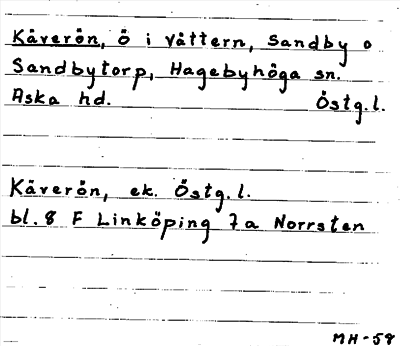 Kåverön, ö i Vättern, Sandby o
Sandbytorp, Hagebyhöga sn.
Aska hd. Östg.l.
Kåverön, ek. Östg.l.
bl. 8 F Linköping 7a Norrsten
MH-58